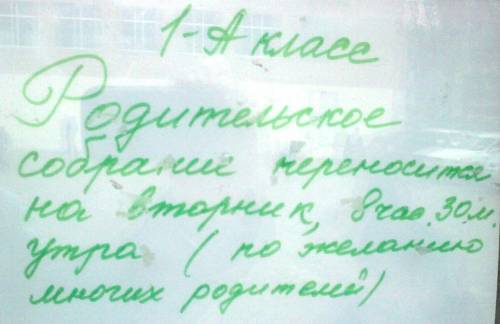 1-А класс
Родительское
собрание переносится
на вторник, 8 час. 30 м.
утра (по желанию
многих родителей)